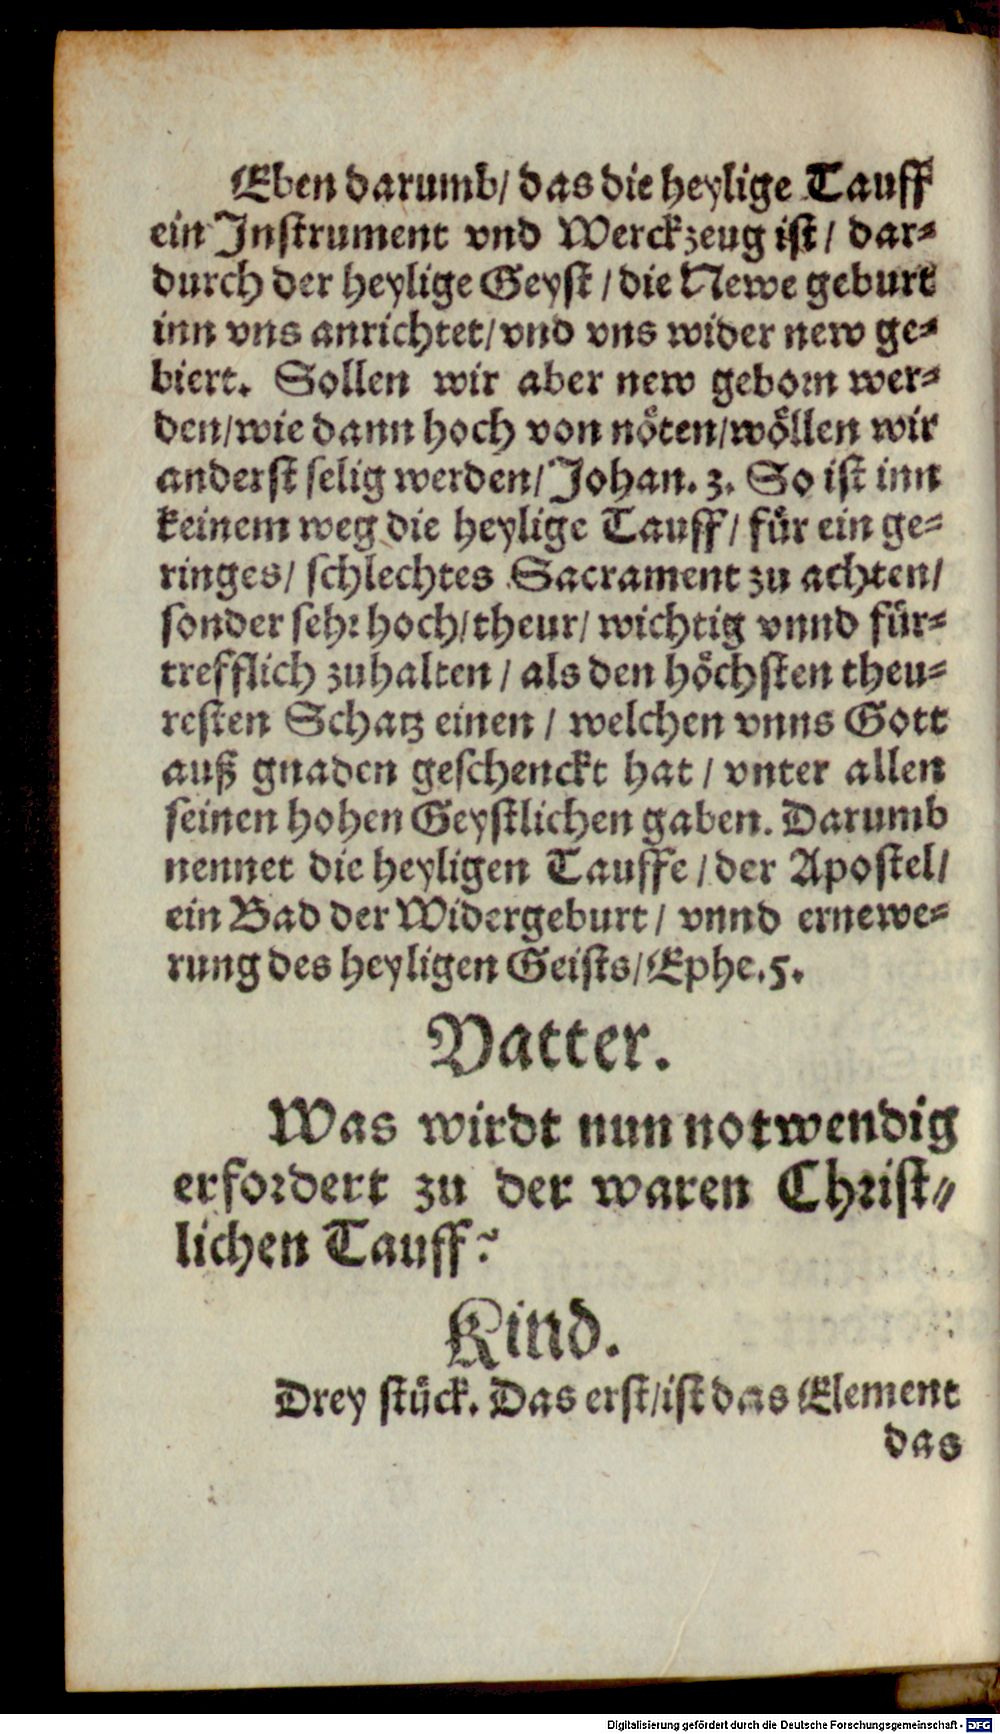 Eben darumb/ das die heylige Tauff
ein Instrument vnd Werckzeug ist/ dar-
durch der heylige Geyst / die Newe geburt
inn vns anrichtet/ vnd vns wider new ge-
biert. Sollen wir aber new geborn wer-
den/ wie dann hoch von nöten/ wöllen wir
anderst selig werden/ Johan. 3. So ist inn
keinem weg die heylige Tauff/ für ein ge-
ringes/ schlechtes Sacrament zu achten/
sonder sehr hoch/ theur/ wichtig vnnd für-
trefflich zuhalten / als den höchsten theu-
resten Schatz einen / welchen vnns Gott
auß gnaden geschenckt hat / vnter allen
seinen hohen Geystlichen gaben. Darumb
nennet die heyligen Tauffe / der Apostel/
ein Bad der Widergeburt / vnnd ernewe-
rung des heyligen Geists/ Ephe. 5.
Vatter.
Was wirdt nun notwendig
erfordert zu der waren Christ-
lichen Tauff?
Kind.
Drey stück. Das erst/ ist das Element
das
Digitalisierung gefördert durch die Deutsche Forschungsgemeinschaft - DFG